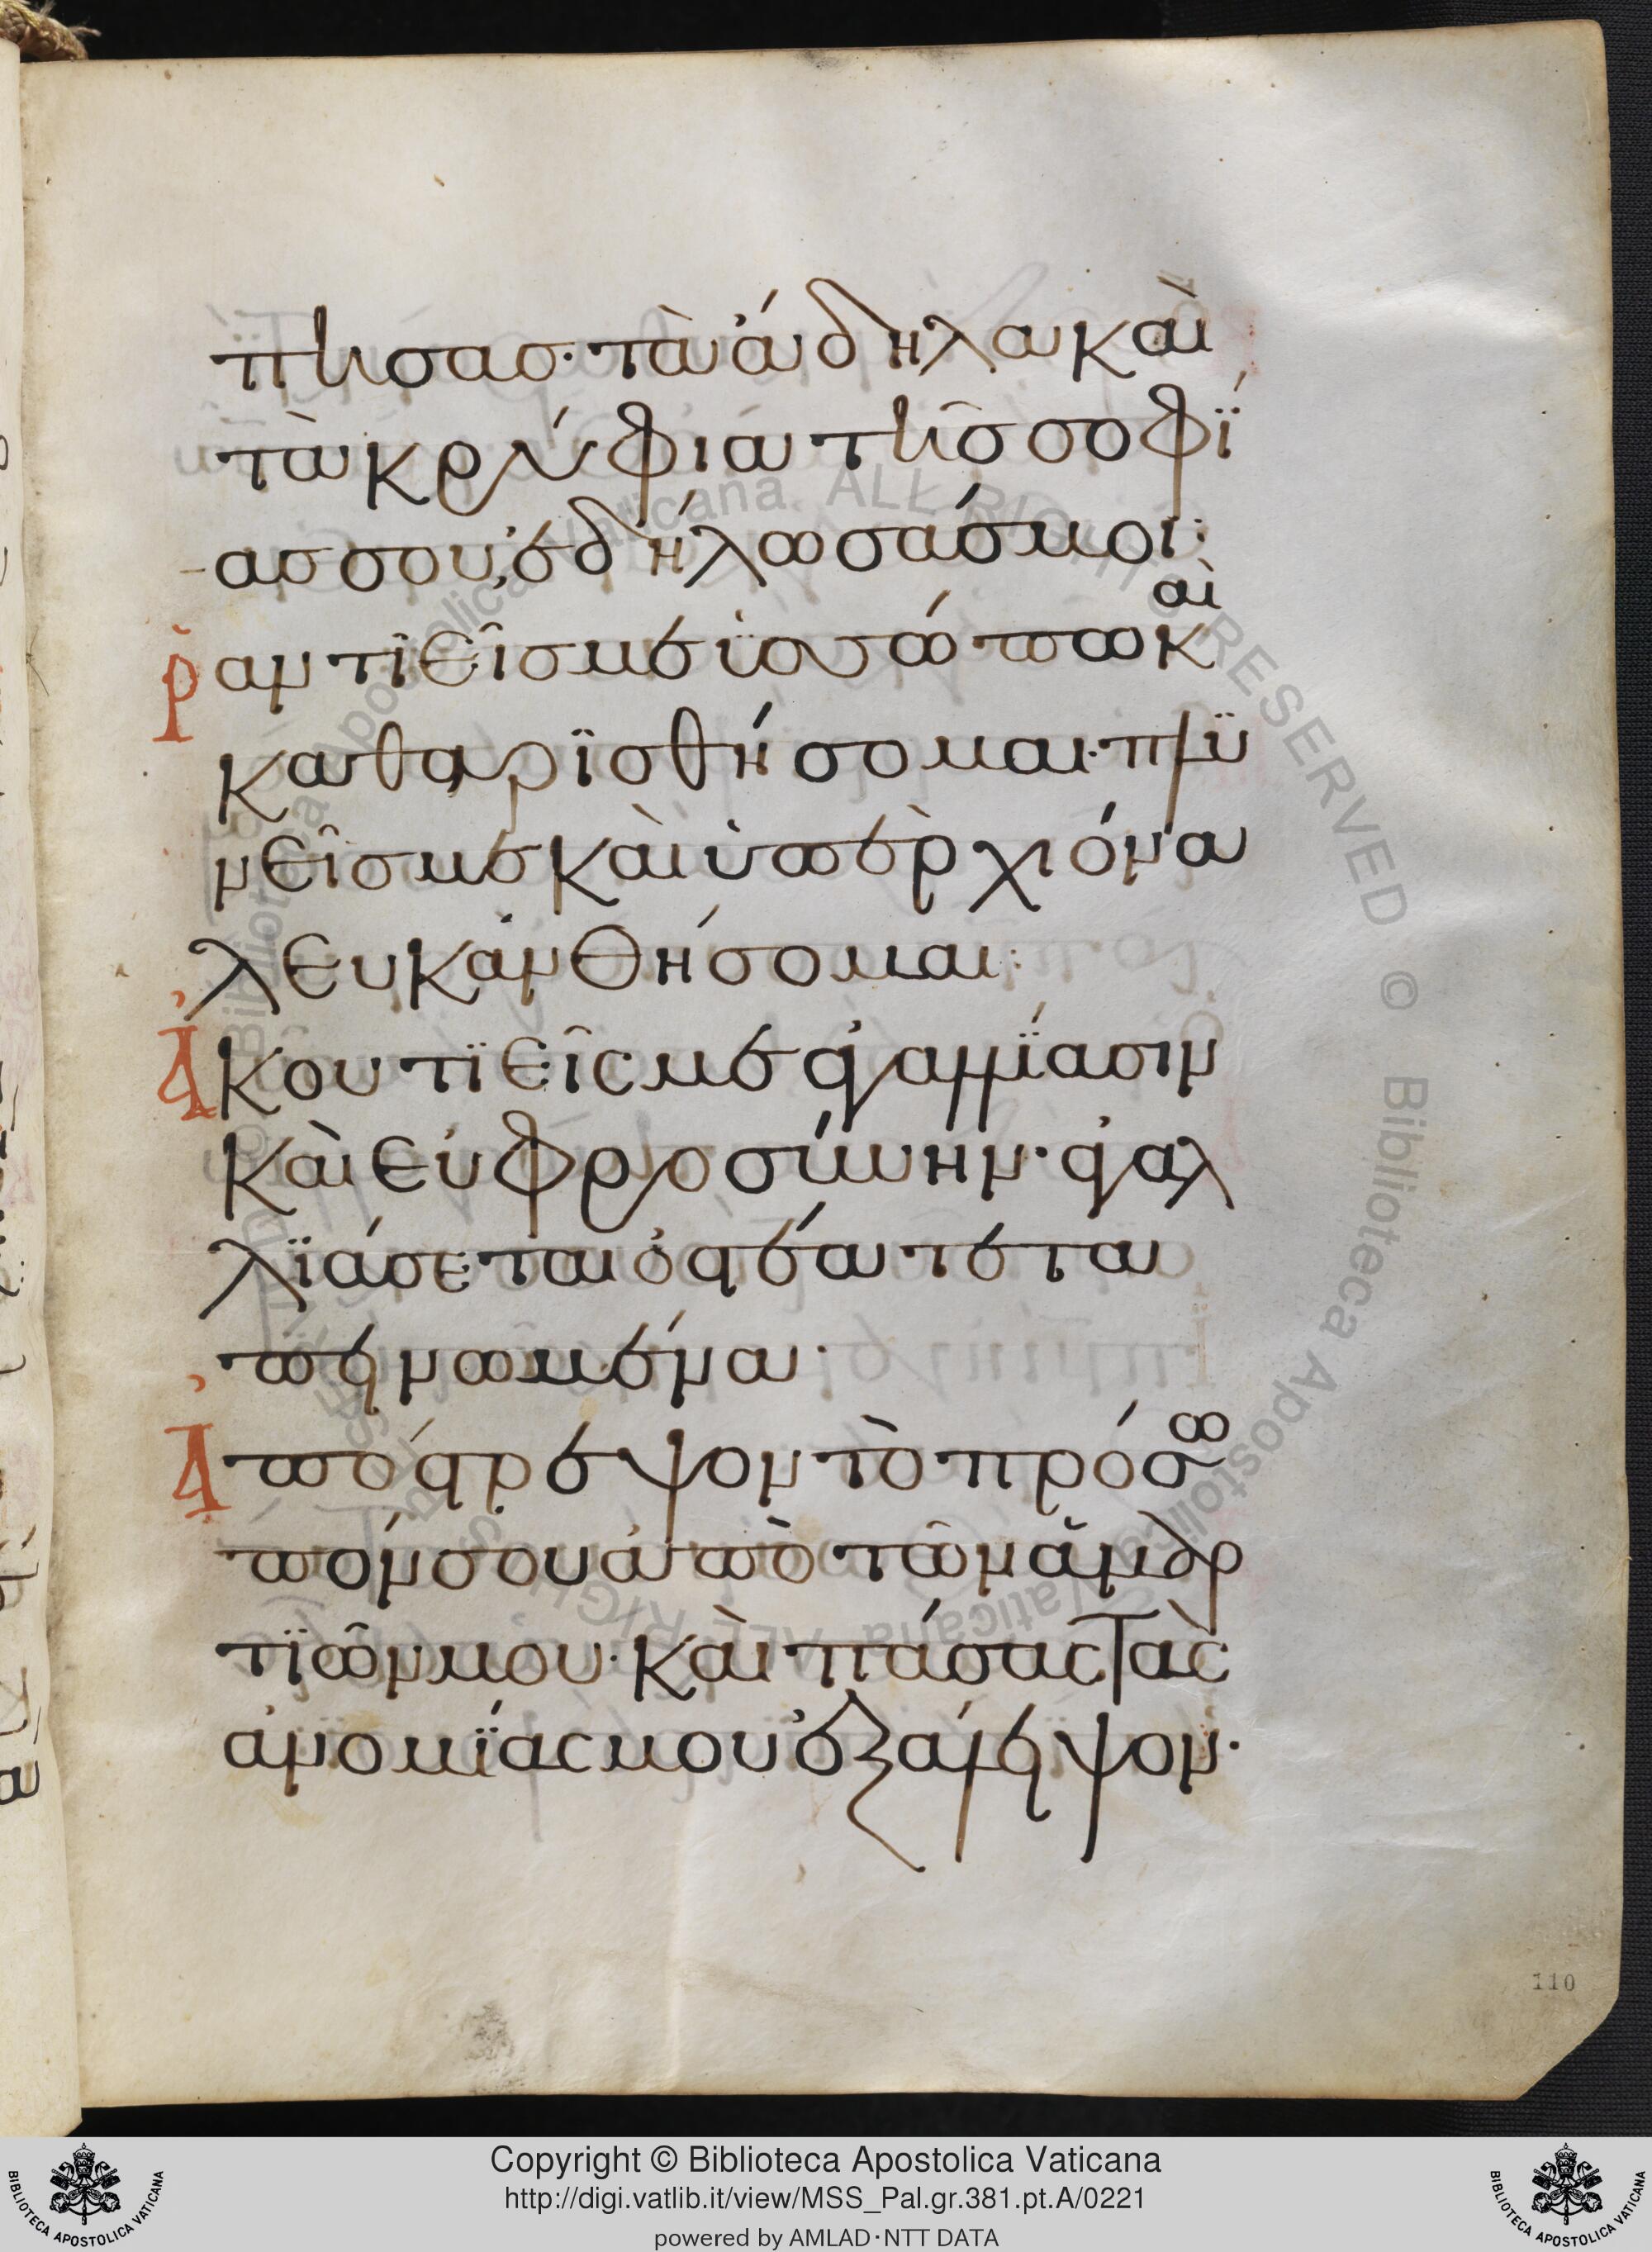 πησας· τὰ ἄδηλα καὶ
τὰ κρύφια τῆς σοφί
ας σου, ἐδήλωσάς μοι:
ῥαντιεῖς με ὑσσώπω κ(αὶ)
καθαρισθήσομαι· πλυ
νεῖς με καὶ ὑπὲρ χιόνα
λευκανθήσομαι:
Ἀκουτιεῖς με ἀγαλλίασιν
καὶ εὐφροσύνην· ἀγαλ
λιάσεται ὀστέα τετα
πεινωμένα·
Ἀπόστρεψον τὸ πρόσω
πόν σου ἀπὸ τῶν ἁμαρ
τιῶν μου· καὶ πάσας τὰς
ἀνομίας μου ἐξάλειψον·
110
Copyright © Biblioteca Apostolica Vaticana
http://digi.vatlib.it/view/MSS_Pal.gr.381.pt.A/0221
powered by AMLAD·NTT DATA
BIBLIOTECA APOSTOLICA VATICANA
BIBLIOTECA APOSTOLICA VATICANA